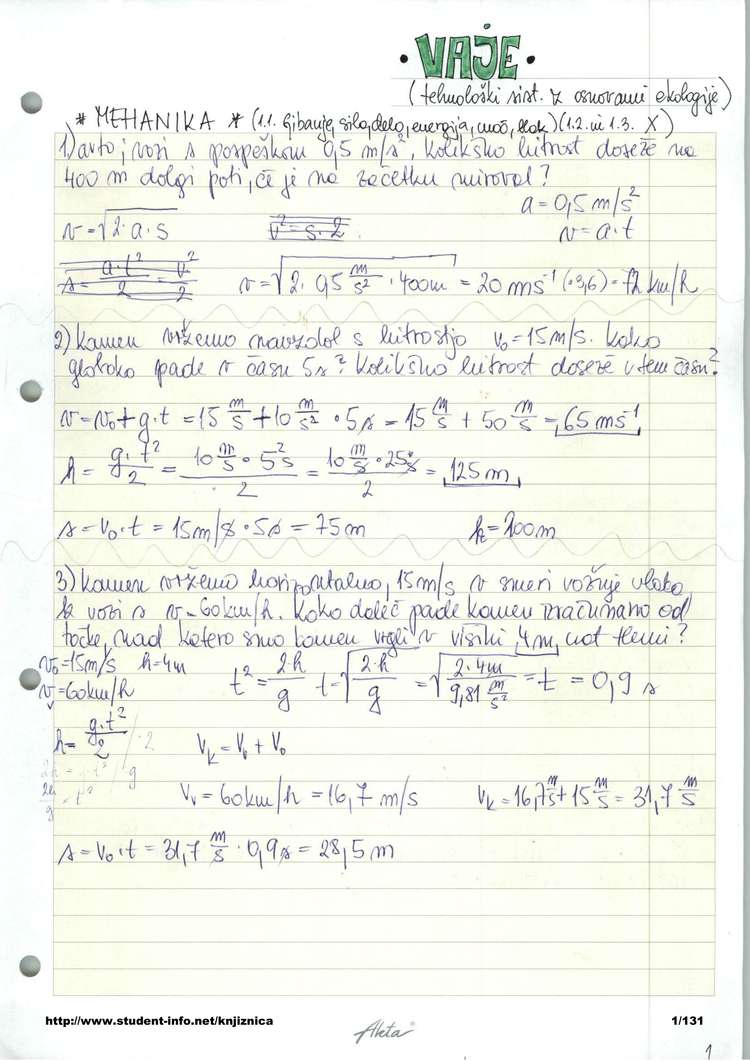 • VAJE •
(tehnološki sist. z osnovami ekologije)
* MEHANIKA * (1.1. Gibanje, sila, delo, energija, moč, tlak) (1.2. in 1.3. X)
1) avto; vozi s pospeškom 0,5 m/s², kolikšno hitrost doseže na
400 m dolgi poti, če je na začetku miroval?
a = 0,5 m/s²
v = √2·a·s v² = s·2 v = a·t
s = a·t²/2 = v²/2 v = √2·0,5 m/s² · 400m = 20 ms⁻¹ (·3,6) = 72 km/h
2) Kamen vržemo navzdol s hitrostjo v₀ = 15 m/s. Kako
globoko pade v času 5s? Kolikšno hitrost doseže v tem času?
v = v₀ + g·t = 15 m/s + 10 m/s² · 5s = 15 m/s + 50 m/s = 65 ms⁻¹
h = g·t²/2 = 10 m/s · 5² s/2 = 10 m/s · 25s/2 = 125 m
s = v₀·t = 15m/s · 5s = 75 m h = 200m
3) Kamen vržemo horizontalno, 15 m/s v smeri vožnje vlaka
ki vozi s v = 60 km/h. Kako daleč pade kamen računano od
točke, nad katero smo kamen vrgli v višini 4m, nad tlemi?
v₀ = 15 m/s h = 4m t² = 2·h/g t = √2·h/g = √2·4m/9,81 m/s² = t = 0,9 s
v = 60 km/h
h = g·t²/2 /·2 Vk = Vv + V₀
2h = g·t² /g
2h/g = t² Vv = 60 km/h = 16,7 m/s Vk = 16,7 m/s + 15 m/s = 31,7 m/s
s = v₀·t = 31,7 m/s · 0,9s = 28,5 m
http://www.student-info.net/knjiznica
Akta
1/131
1